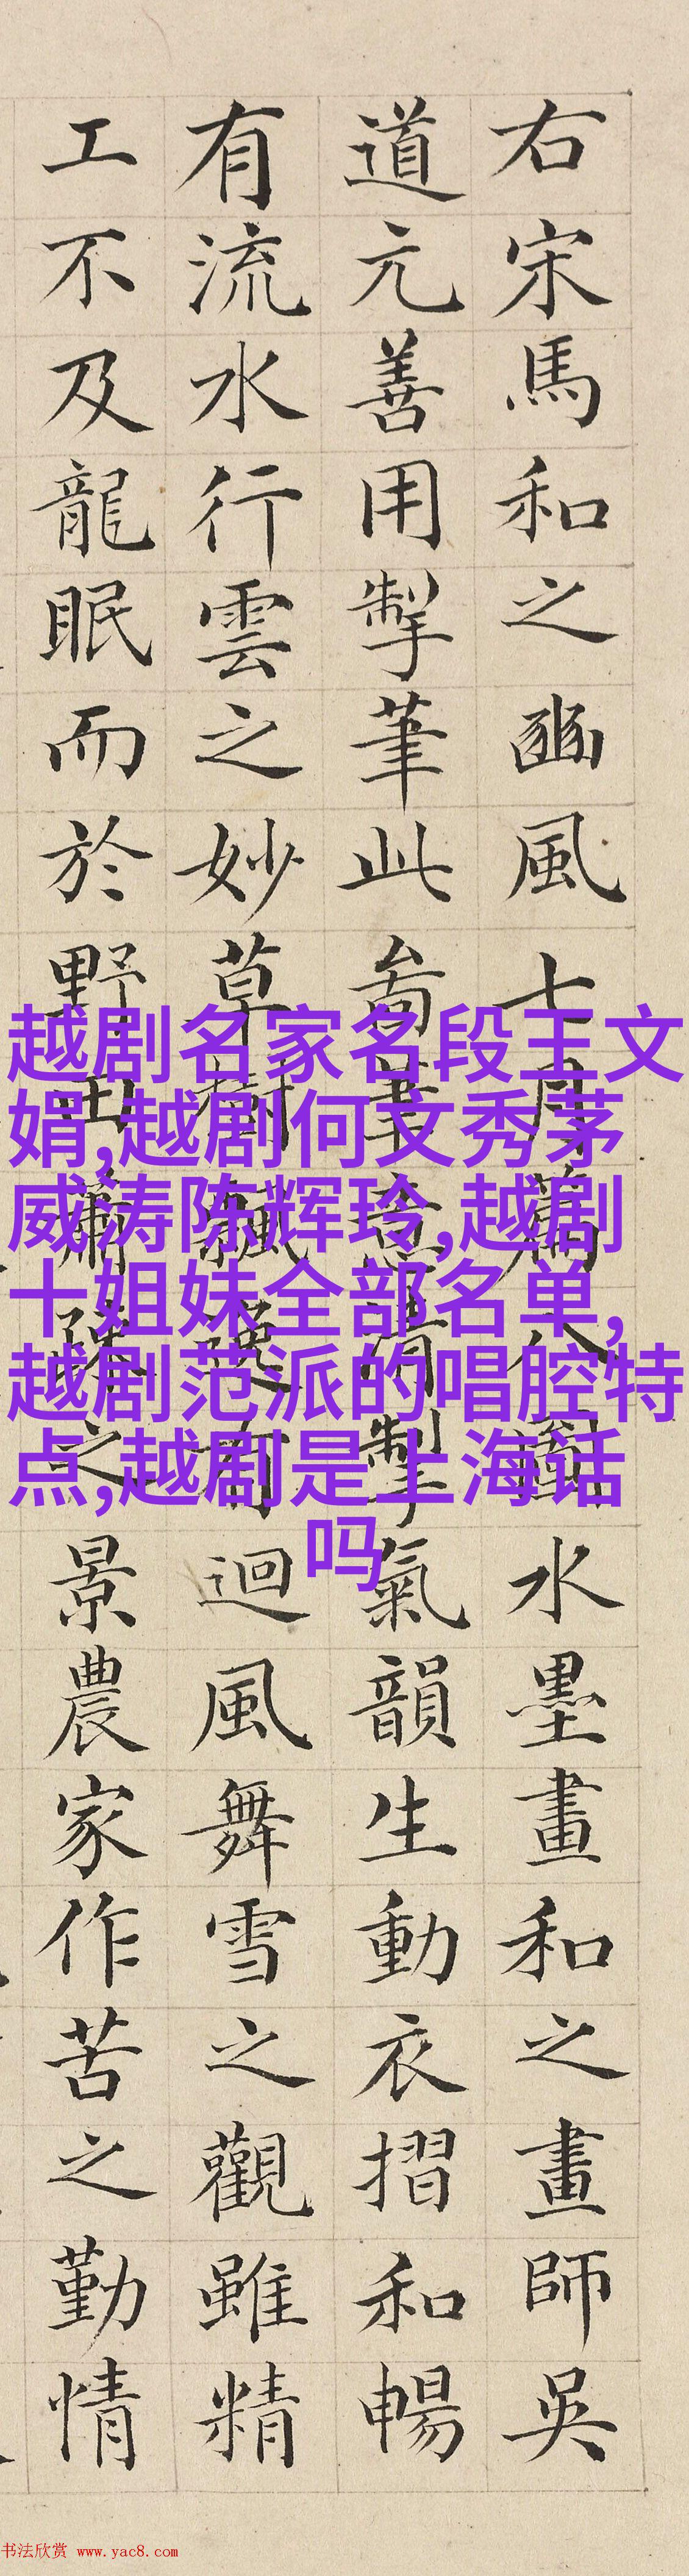 右宋馬和之豳風七月蕭人圖水墨畫和之畫師吳
道元善用掣筆此啚筆意清掣氣韻生動衣摺和暢
有流水行雲之妙草樹飄颻有迴風舞雪之觀雖精
工不及龍眠而於野田蕭踈之景農家作苦之勤情
越剧名家名段王文
娟,越剧何文秀茅
威涛陈辉玲,越剧
十姐妹全部名单,
越剧范派的唱腔特
点,越剧是上海话
吗
书法欣赏 www.yac8.com